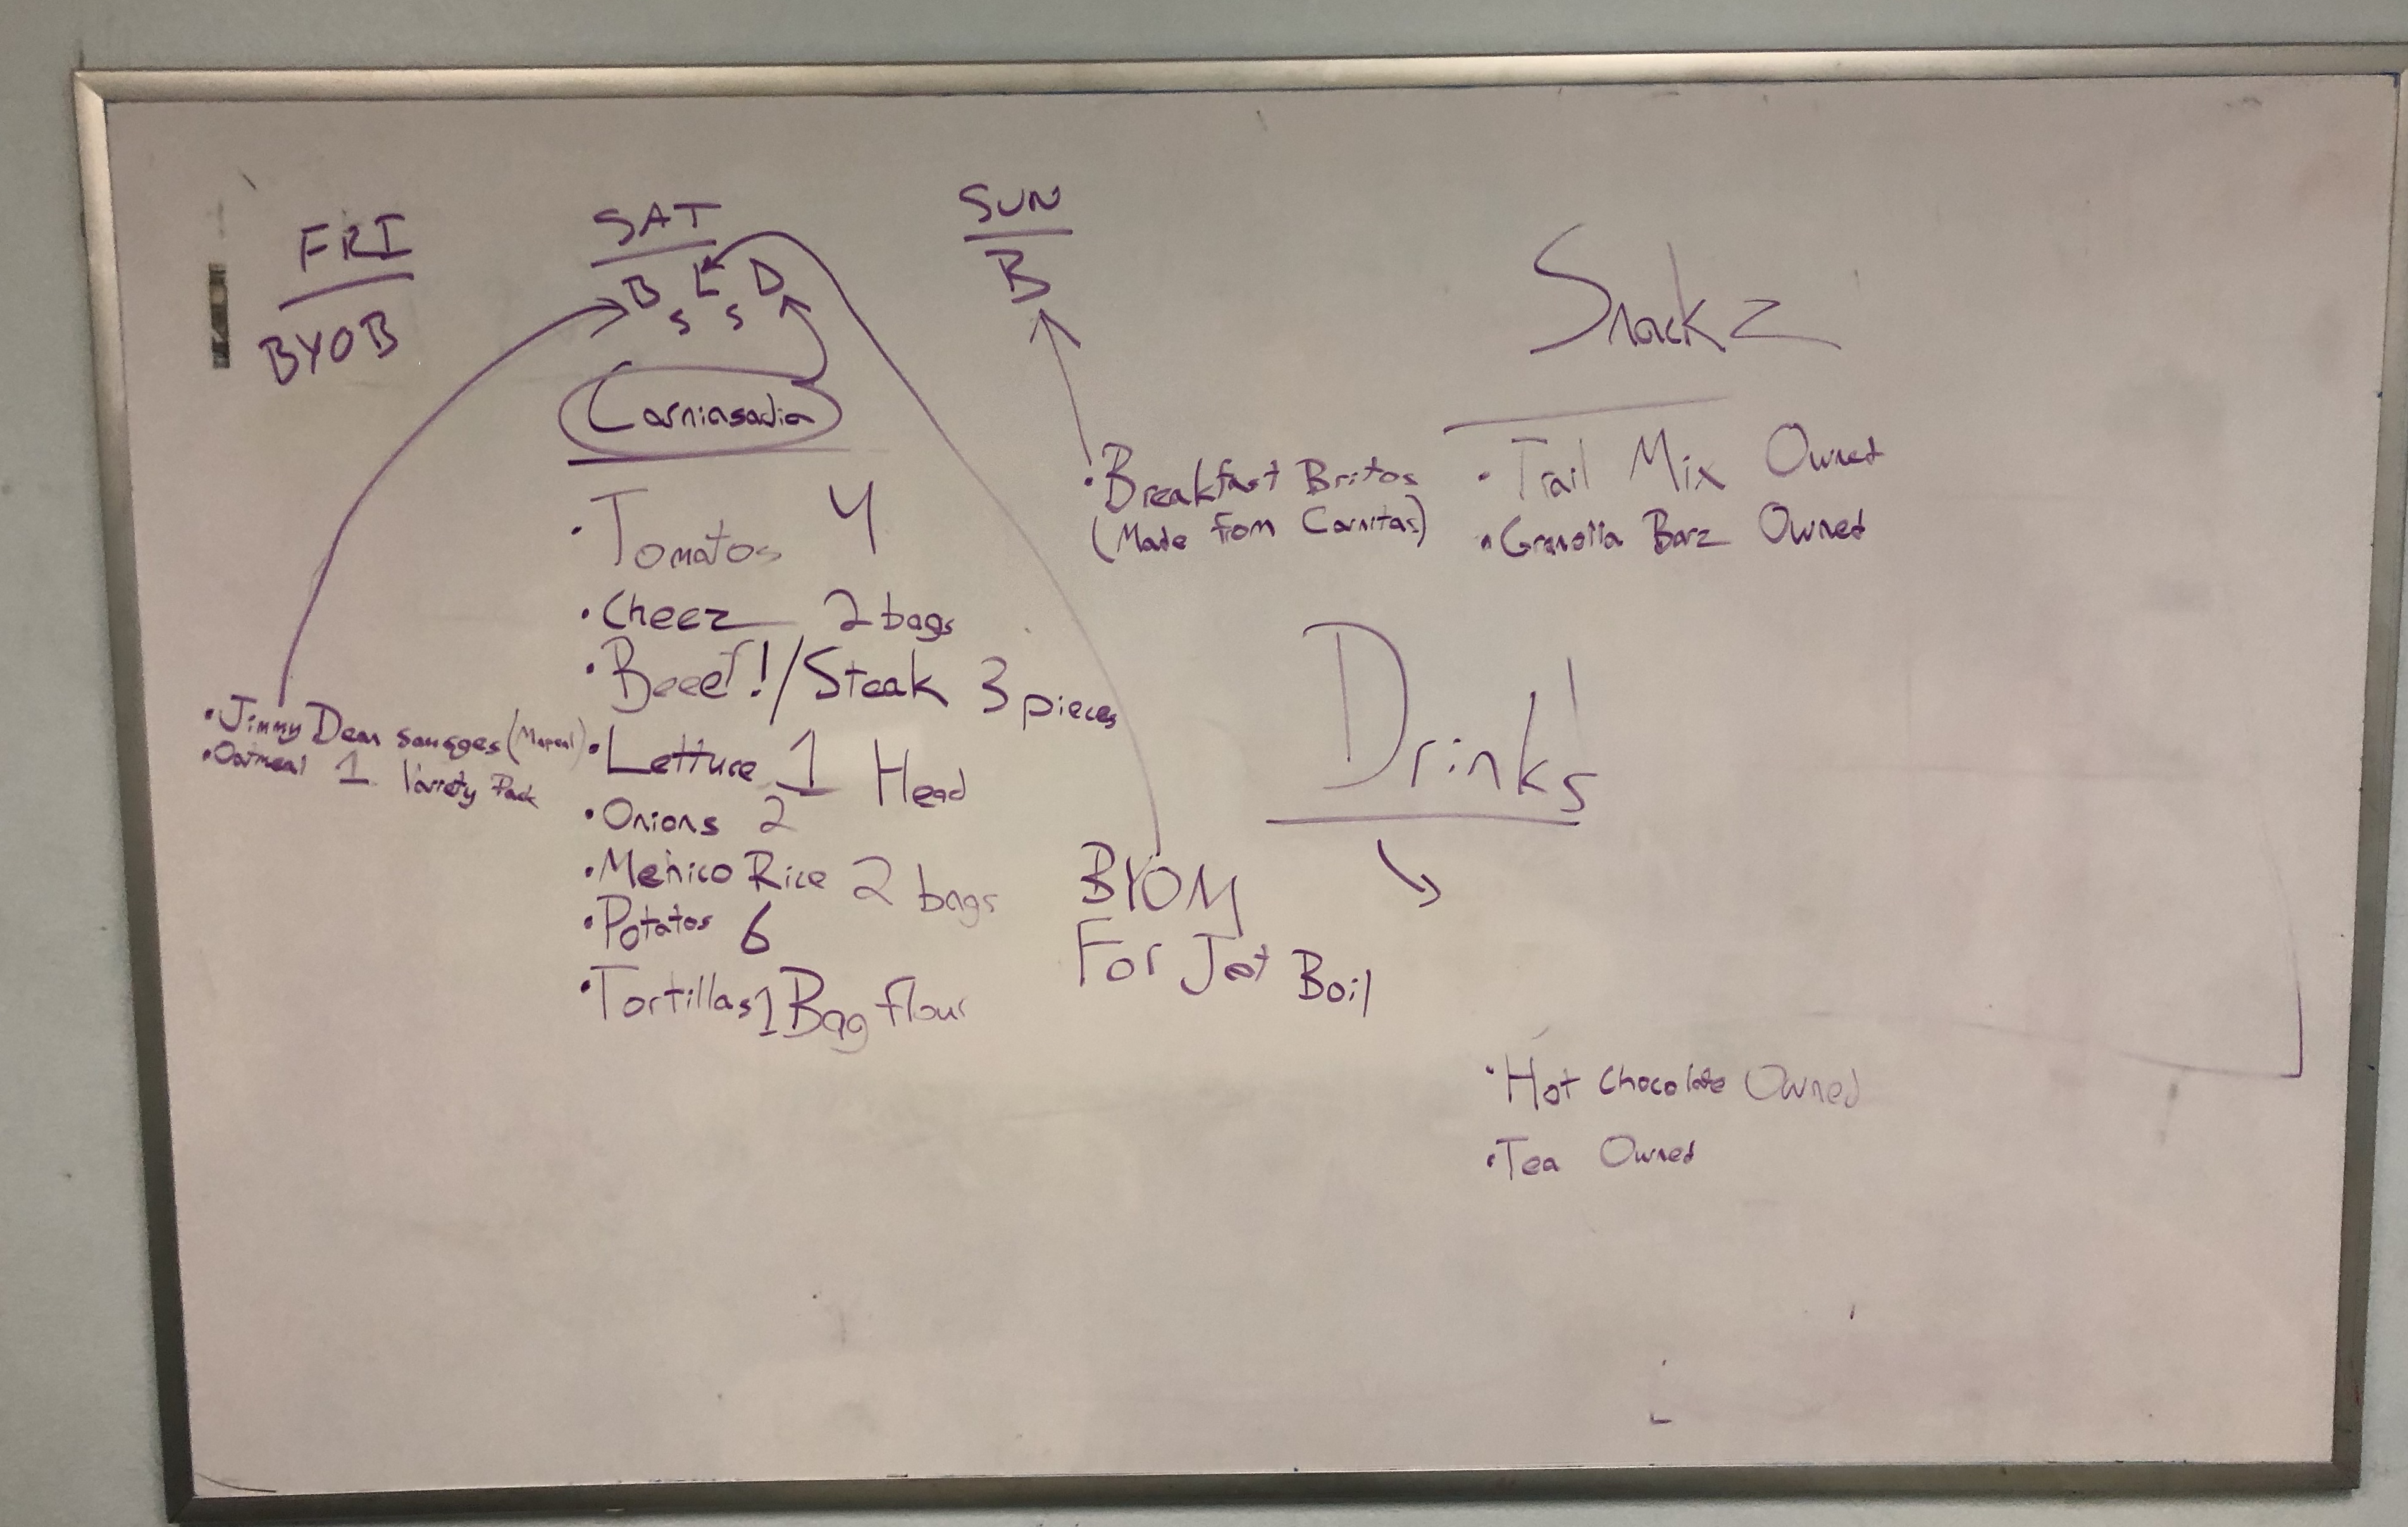 FRI
BYOB
SAT
B L D
S S
SUN
B
Snackz
• Trail Mix Owned
• Granolla Barz Owned
• Breakfast Britos
(Made from Carnitas)
• Tomatos 4
• Cheez 2 bags
• Beeef!/Steak 3 pieces
• Lettuce 1 Head
• Onions 2
• Mehico Rice 2 bags
• Potatos 6
• Tortillas 1 Bag flour
• Jimmy Dean
• Oatmeal 1 Variety Pack
BYOM
For Jet Boil
Drinks
• Hot Chocolate Owned
• Tea Owned